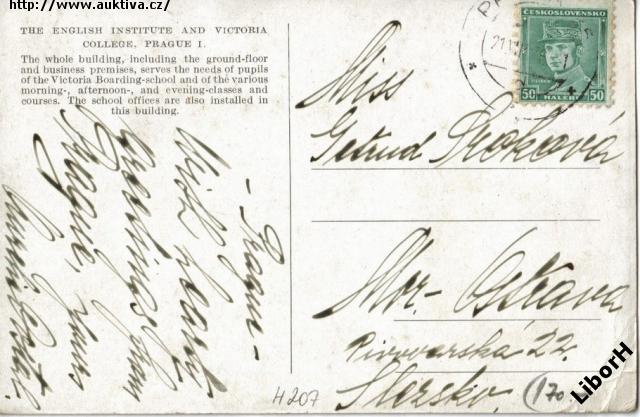 http://www.auktiva.cz/
THE ENGLISH INSTITUTE AND VICTORIA
COLLEGE, PRAGUE I.
The whole building, including the ground-floor
and business premises, serves the needs of pupils
of the Victoria Boarding-school and of the various
morning-, afternoon-, and evening-classes and
courses. The school offices are also installed in
this building.
ČESKOSLOVENSKO
50 HALÉŘŮ 50
Miss
Getrud
Mor.- Ostrava
Pivovarská 22.
Slezsko.
With hearty
greetings from
Prague,
Yours
4207
170
LiborH